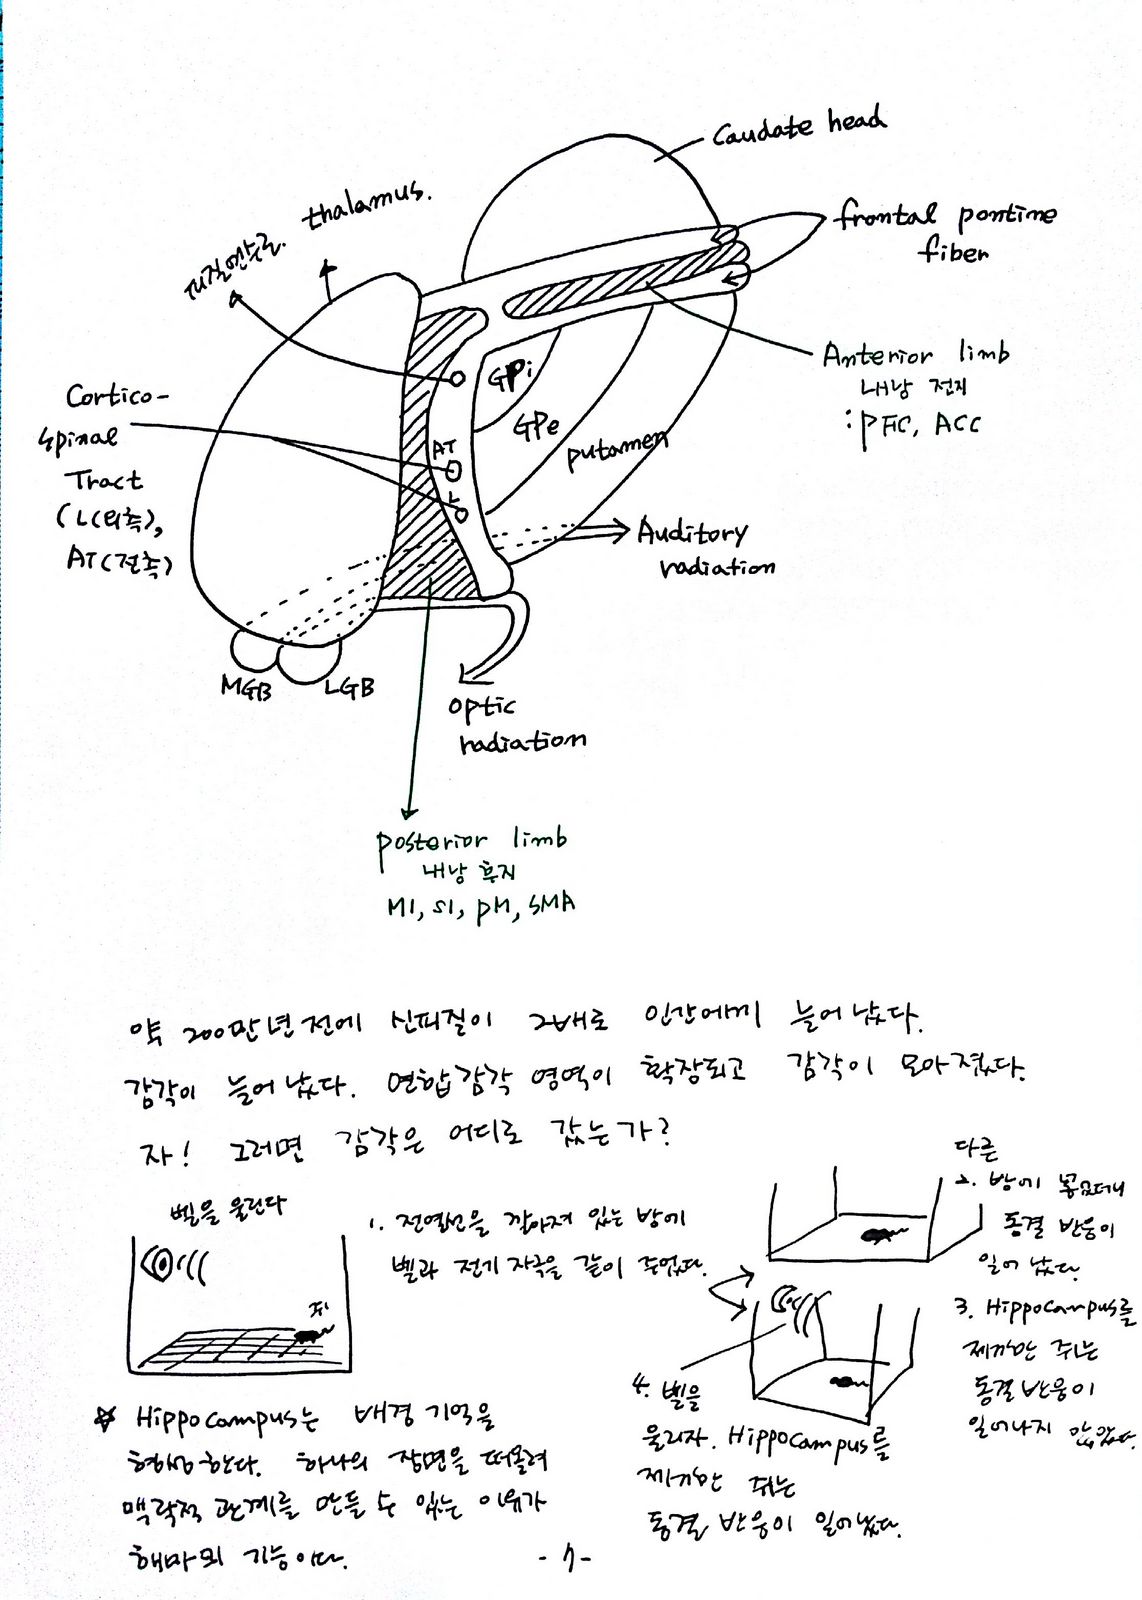 Caudate head
thalamus.
피질연수로
frontal pontine
fiber
Anterior limb
내낭 전지
: PFC, ACC
GPi
GPe
putamen
Cortico-
spinal
Tract
(L(외측),
AT(전측)
AT
L
Auditory
radiation
MGB
LGB
optic
radiation
posterior limb
내낭 후지
M1, S1, PM, SMA
약 200만년 전에 신피질이 2배로 인간에게 늘어났다.
감각이 늘어났다. 연합감각 영역이 확장되고 감각이 모아졌다.
자! 그러면 감각은 어디로 갔는가?
벨을 울린다
쥐
1. 전열선을 깔아져 있는 방에
벨과 전기 자극을 같이 주었다.
다른
2. 방에 놓았더니
동결 반응이
일어났다.
3. Hippocampus를
제거한 쥐는
동결 반응이
일어나지 않았다.
4. 벨을
울리자. Hippocampus를
제거한 쥐는
동결 반응이 일어났다.
☆ Hippocampus는 배경 기억을
형성한다. 하나의 장면을 떠올려
맥락적 관계를 만들 수 있는 이유가
해마의 기능이다.
- 7 -